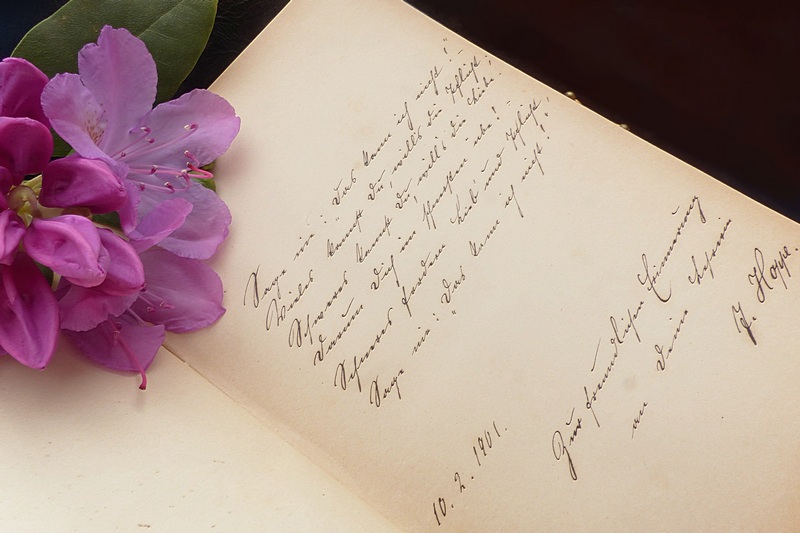 Sage nie: "Das kann ich nicht!"
Vieles kannst Du, will's die Pflicht,
Schweres kannst Du, will's die Lieb'.
Darum Dich im Schweren übe! -
Schweres fordern Lieb' und Pflicht,
Sage nie: "Das kann ich nicht!"
Zur freundlichen Erinnerung
an Deine
J. Hoppe.
10. 2. 1901.